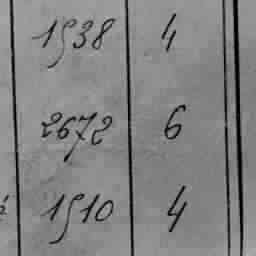 1938 4
2672 6
1910 4